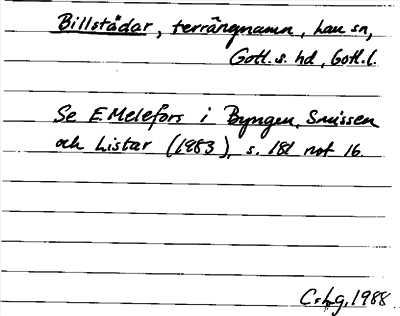 Billstädar, terrängnamn, Lau sn,
Gotl. s. hd, Gotl. l.
Se E. Melefors i Byngen, Snissen
och Listar (1983), s. 181 not 16.
C. Lg. 1988